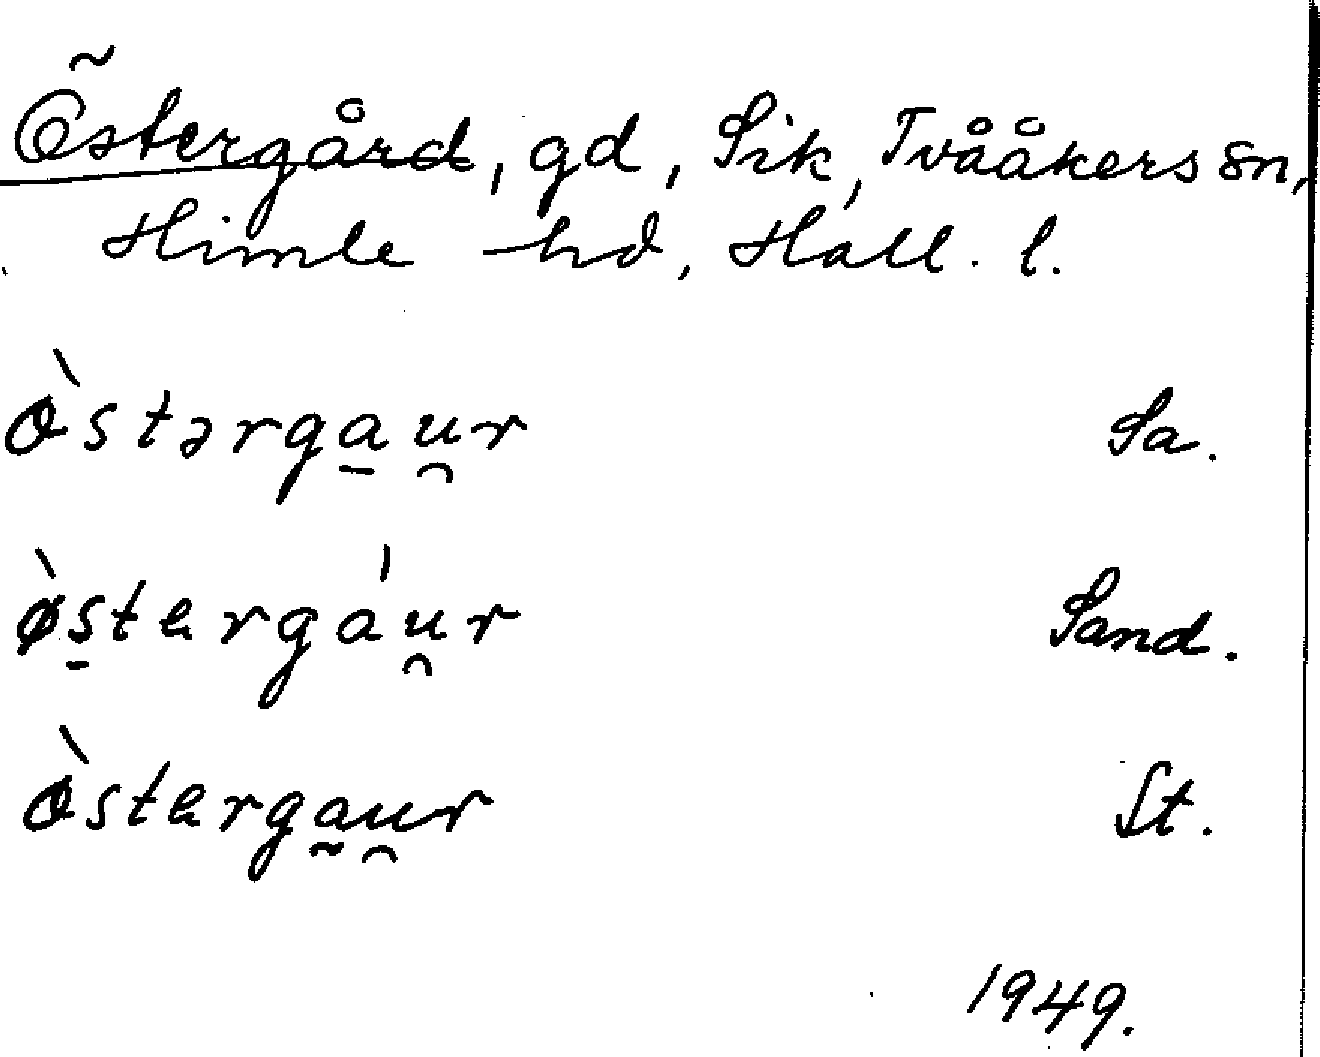 Östergård, gd, Sik, Tvååkers sn,
Himle hd, Hall. l.
ø̀stərga̠u̯r Sa.
ø̀s̠tergáu̯r Sand.
ø̀sterga̰u̯r St.
1949.